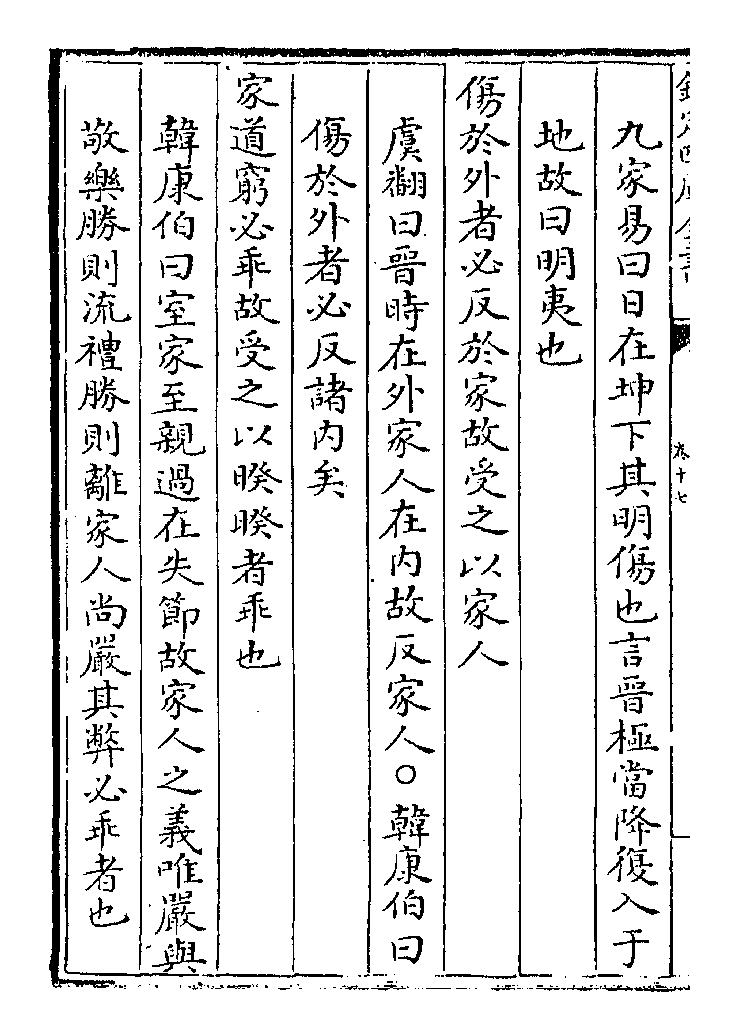 欽定四庫全書
卷十七
九家易曰日在坤下其明傷也言晉極當降復入于
地故曰明夷也
傷於外者必反於家故受之以家人
虞翻曰晉時在外家人在内故反家人○韓康伯曰
傷於外者必反諸内矣
家道窮必乖故受之以暌暌者乖也
韓康伯曰室家至親過在失節故家人之義唯嚴與
敬樂勝則流禮勝則離家人尚嚴其弊必乖者也